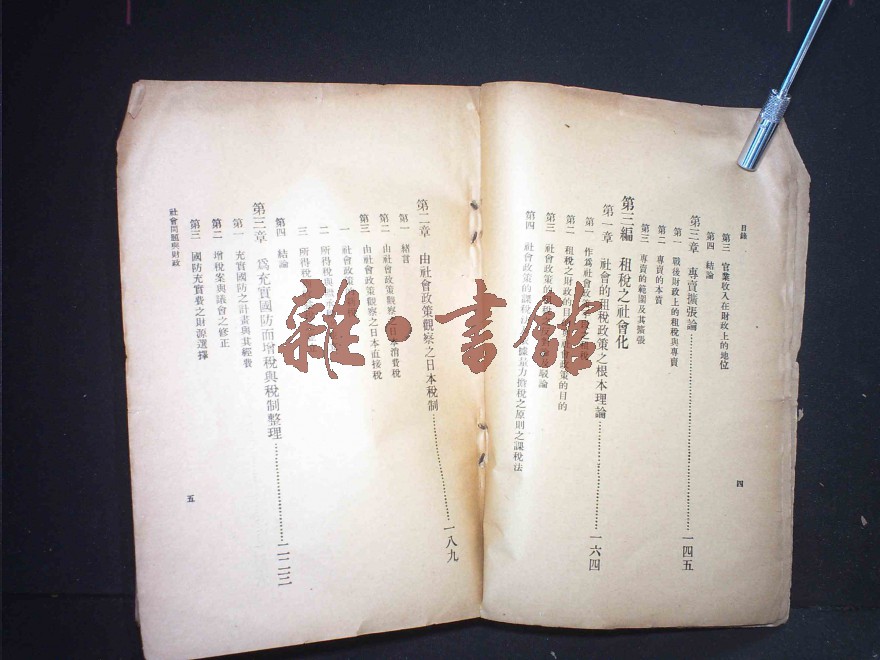 目錄
第三 官業收入在財政上的地位
第四 結論
第三章 專賣擴張論……一四五
第一 戰後財政上的租稅與專賣
第二 專賣的本質
第三 專賣的範圍及其擴張
第三編 租稅之社會化
第一章 社會的租稅政策之根本理論……一六四
第一 作爲社會政
第二 租稅之財政的目 社會政策的目的
第三 社會政策的租 駁論
第四 社會政策的課稅 據量力擔稅之原則之課稅法
四
第二章 由社會政策觀察之日本稅制……一八九
第一 緒言
第二 由社會政策觀察之日本消費稅
第三 由社會政策觀察之日本直接稅
一 社會政策
二 所得稅與
三 所得稅
第四 結論
第三章 爲充實國防而增稅與稅制整理……二二三
第一 充實國防之計畫與其經費
第二 增稅案與議會之修正
第三 國防充實費之財源選擇
社會問題與財政
五
雜·書館